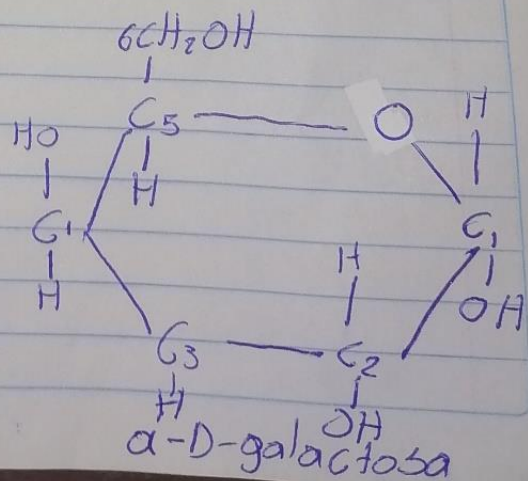 6CH₂OH
C5 O H
HO H
C1 H C1
H OH
C3 C2
H OH
α-D-galactosa